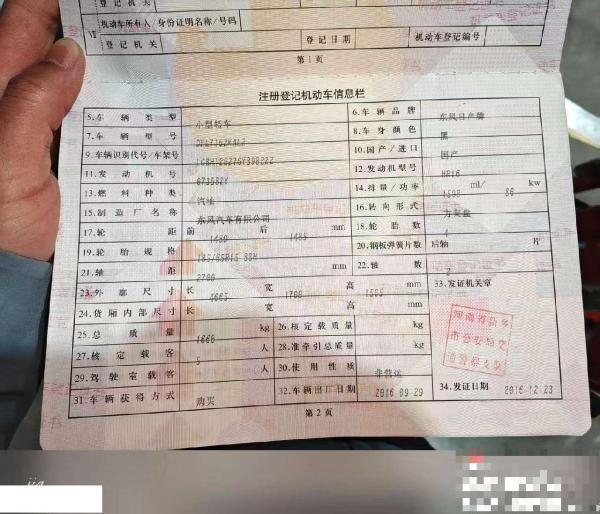 登记机关
机动车所有人/身份证明名称/号码
登记机关 登记日期 机动车登记编号
第1页
注册登记机动车信息栏
5.车辆类型 小型轿车 6.车辆品牌 东风日产牌
7.车辆型号 8.车身颜色 黑
9.车辆识别代号/车架号 10.国产/进口 国产
11.发动机号 673582Y 12.发动机型号 HR16
13.燃料种类 汽油 14.排量/功率 1598 ml/ kw
15.制造厂名称 东风汽车有限公司 16.转向形式 方向盘
17.轮距 前 1480 后 1485 mm 18.轮胎数 4
19.轮胎规格 195/65R15 88H 20.钢板弹簧片数 后轴 片
21.轴距 2700 mm 22.轴数 2
23.外廓尺寸 长 宽 高 mm 33.发证机关章
24.货厢内部尺寸 长 宽 高 mm
25.总质量 1666 kg 26.核定载质量 kg
27.核定载客 5 人 28.准牵引总质量 kg
29.驾驶室载客 人 30.使用性质 非营运
31.车辆获得方式 购买 32.车辆出厂日期 2016-09-29 34.发证日期 2016-12-23
河南省新乡
市公安局交
通警察支队
第2页